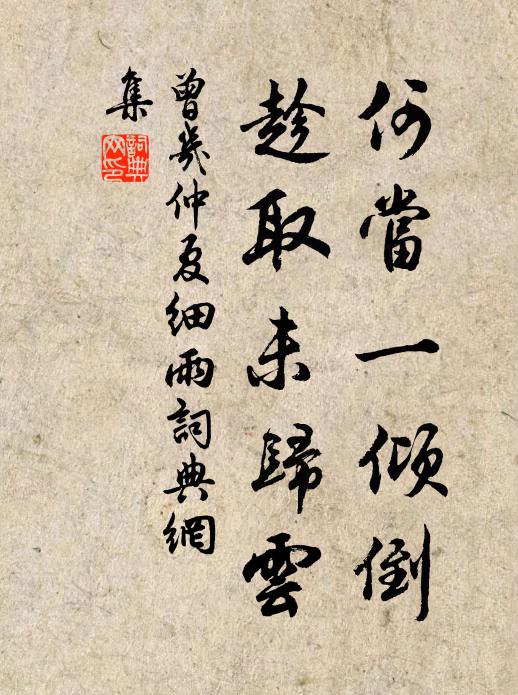 何當一傾倒
趁取未歸雲
曾幾仲夏細雨詞典網
集
詞典
网印